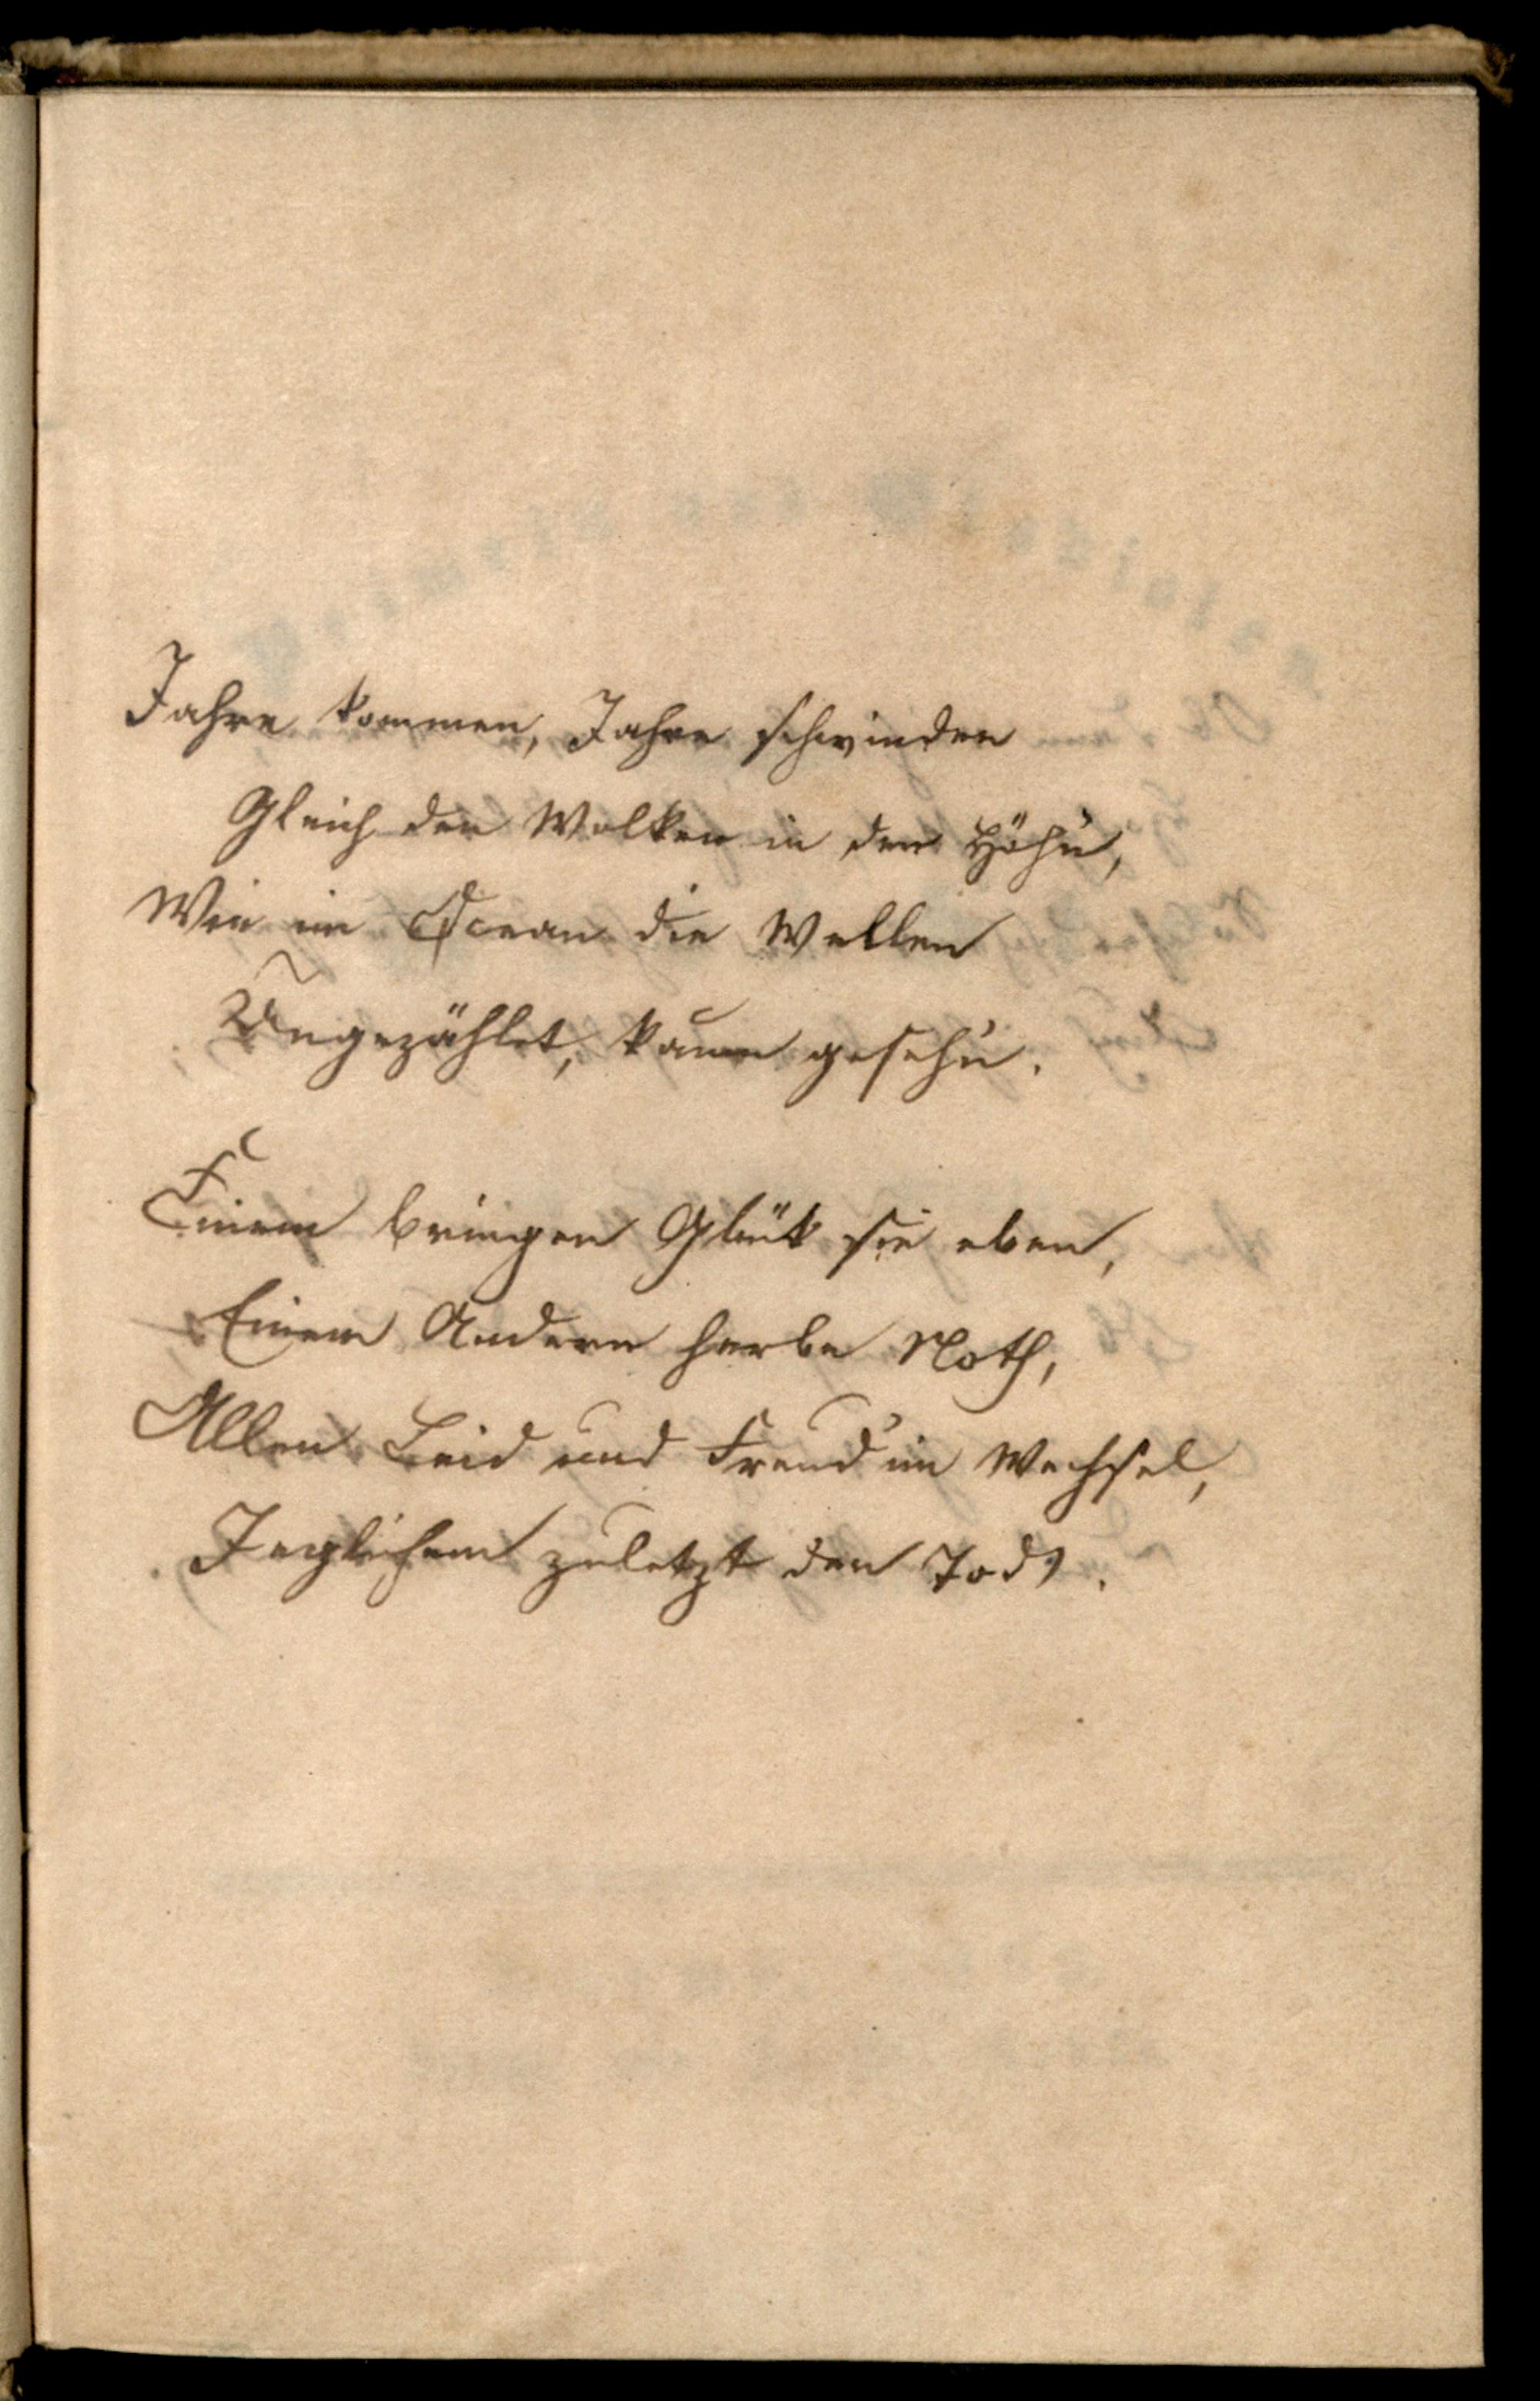 Jahre kommen, Jahre schwinden
Gleich den Wolken in den Höhn,
Wie im Ocean die Wellen
Ungezählet, kaum gesehn.
Einem bringen Glük sie eben,
Einem Andern herbe Noth,
Allen Leid und Freud im Wechsel,
Jeglichem zuletzt den Tod.